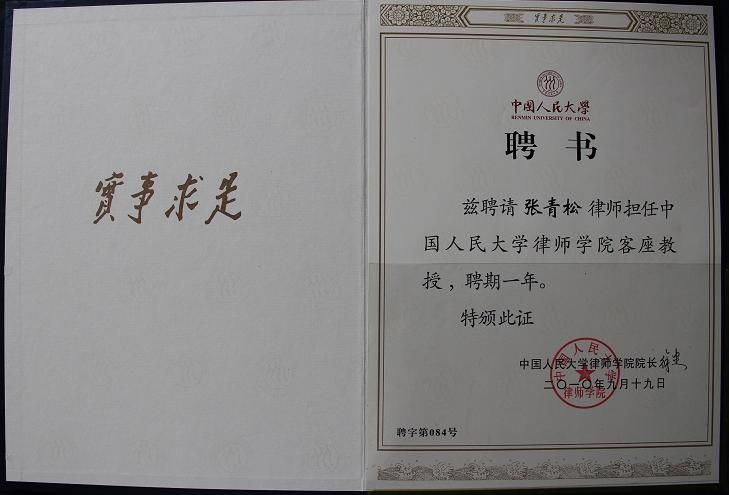 實事求是
實事求是
中国人民大学
RENMIN UNIVERSITY OF CHINA
聘 书
兹聘请 张青松 律师担任中
国人民大学律师学院客座教
授，聘期一年。
特颁此证
中国人民大学律师学院院长
二〇一〇年九月十九日
中国人民大学
律师学院
聘字第084号